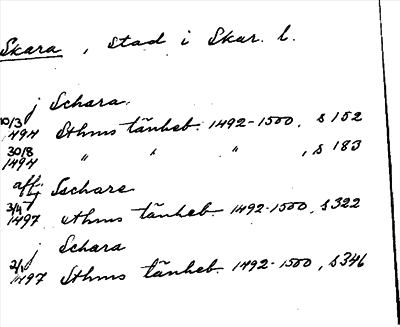 Skara, stad i Skar. l.
j Schara.
10/3 1494 Sthms tänkeb. 1492-1500, s 152
30/8 1494 " " " , s 183
aff Sschare
3/4 1497 Sthms tänkeb. 1492-1500, s 322
j Schara
1497 Sthms tänkeb. 1492-1500, s 346